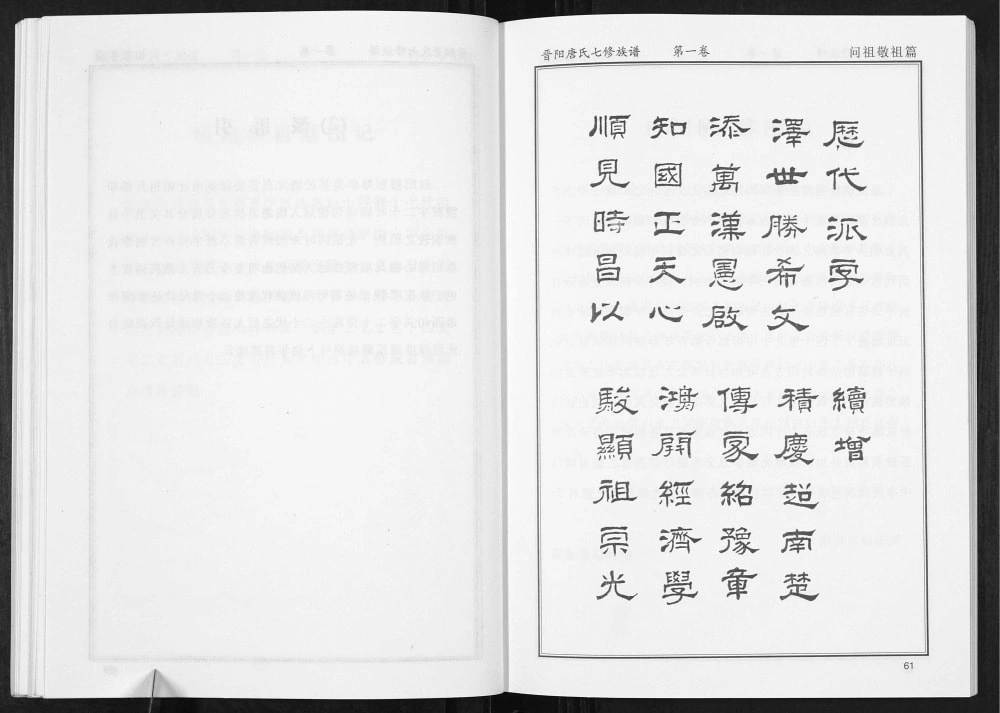 晋阳唐氏七修族谱 第一卷 问祖敬祖篇
歷代派字
澤世勝希文
添萬漢憲啟
知國正天心
順見時昌以
續增
積慶起南楚
傳家紹豫章
鴻開經濟學
駿顯祖宗光
61